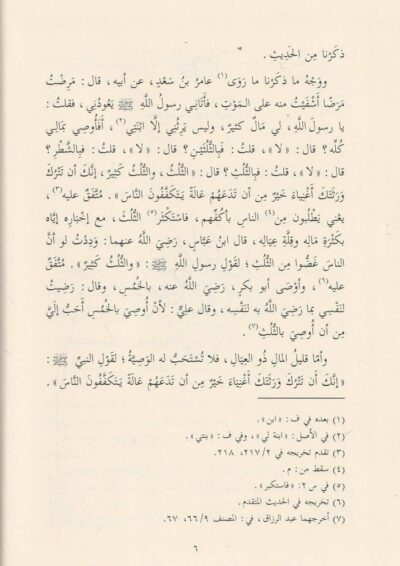 ذكَرْنا مِن الحَدِيثِ .
ووَجْهُ ما ذكَرْنا ما رَوَى(١) عامرُ بنُ سَعْدٍ ، عن أبيه ، قال : مَرِضْتُ
مَرَضًا أشْفَيْتُ منه على المَوْتِ ، فأتَانِي رسولُ اللَّهِ ﷺ يَعُودُنِي ، فقلتُ :
يا رسولَ اللَّهِ ، لي مَالٌ كثيرٌ ، وليس يَرِثُنِي إلَّا ابْنَتِي(٢) ، أفَأُوصِي بمَالِي
كُلِّه ؟ قال : « لا » ، قلتُ : فبِالثُّلُثَيْنِ ؟ قال : « لا » ، قلتُ : فبِالشَّطْرِ ؟
قال : « لا » ، قلتُ : فبِالثُّلُثِ ؟ قال : « الثُّلُثُ ، والثُّلُثُ كَثِيرٌ ، إنَّكَ أن تَتْرُكَ
وَرَثَتَكَ أَغْنِيَاءَ خَيْرٌ مِن أن تَدَعَهُمْ عَالَةً يَتَكَفَّفُونَ النَّاسَ » . مُتَّفَقٌ عليه(٣) ،
يعْنِي يَطْلُبون مِن(٤) الناسِ بأكُفِّهم ، فاسْتَكْثَرَ(٥) الثُّلُثَ ، مع إخْبارِه إيَّاه
بكَثْرَةِ مَالِه وقِلَّةِ عِيَالِه ، قال ابنُ عَبَّاسٍ ، رَضِيَ اللَّهُ عنهما : وَدِدْتُ لو أنَّ
الناسَ غَضُّوا مِن الثُّلُثِ ؛ لقَوْلِ رسولِ اللَّهِ ﷺ : « والثُّلُثُ كَثِيرٌ » . مُتَّفَقٌ
عليه(٦) ، وأوْصَى أبو بكرٍ ، رَضِيَ اللَّهُ عنه ، بالخُمْسِ ، وقال : رَضِيتُ
لنَفْسِي بما رَضِيَ اللَّهُ به لنَفْسِه ، وقال عليٌّ : لأنْ أُوصِيَ بالخُمْسِ أحَبُّ إليَّ
مِن أن أُوصِيَ بالثُّلُثِ(٧) .
وأمّا قليلُ المالِ ذُو العِيَالِ ، فلا تُسْتَحَبُّ له الوَصِيَّةُ ؛ لقَوْلِ النبيِّ ﷺ :
« إنَّكَ أن تَتْرُكَ وَرَثَتَكَ أَغْنِيَاءَ خَيْرٌ مِن أن تَدَعَهُمْ عَالَةً يَتَكَفَّفُونَ النَّاسَ » .
(١) بعده في ف : « ابن » .
(٢) في الأصل : « ابنة لي » ، وفي ف : « بنتي » .
(٣) تقدم تخريجه في ٢١٧/٢ ، ٢١٨ .
(٤) سقط من : م .
(٥) في س ٢ : « فاستكبر » .
(٦) تخريجه في الحديث المتقدم .
(٧) أخرجهما عبد الرزاق ، في : المصنف ٦٦/٩ ، ٦٧ .
٦